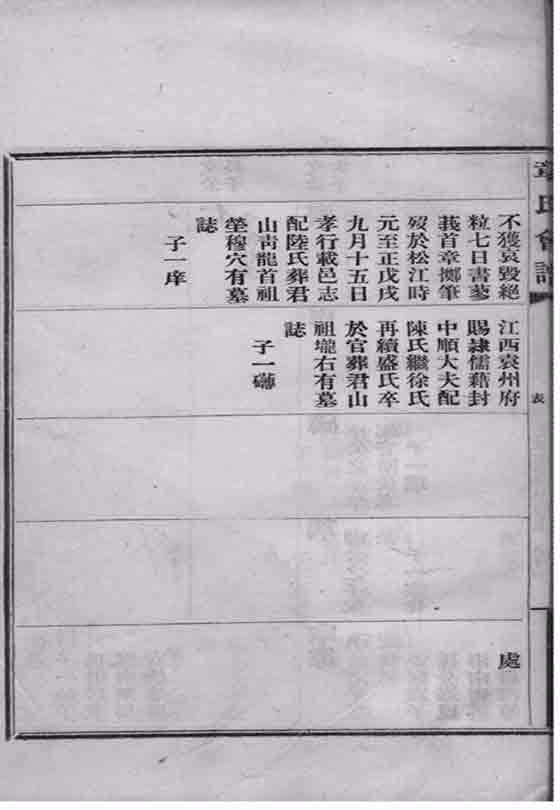 章氏會譜
表
不獲哀毀絕
粒七日書蓼
莪首章擲筆
歿於松江時
元至正戊戌
九月十五日
孝行載邑志
配陸氏葬君
山靑龍首祖
塋穆穴有墓
誌
子一庠
江西袁州府
賜隸儒藉封
中順大夫配
陳氏繼徐氏
再續盛氏卒
於官葬君山
祖壠右有墓
誌
子一
處